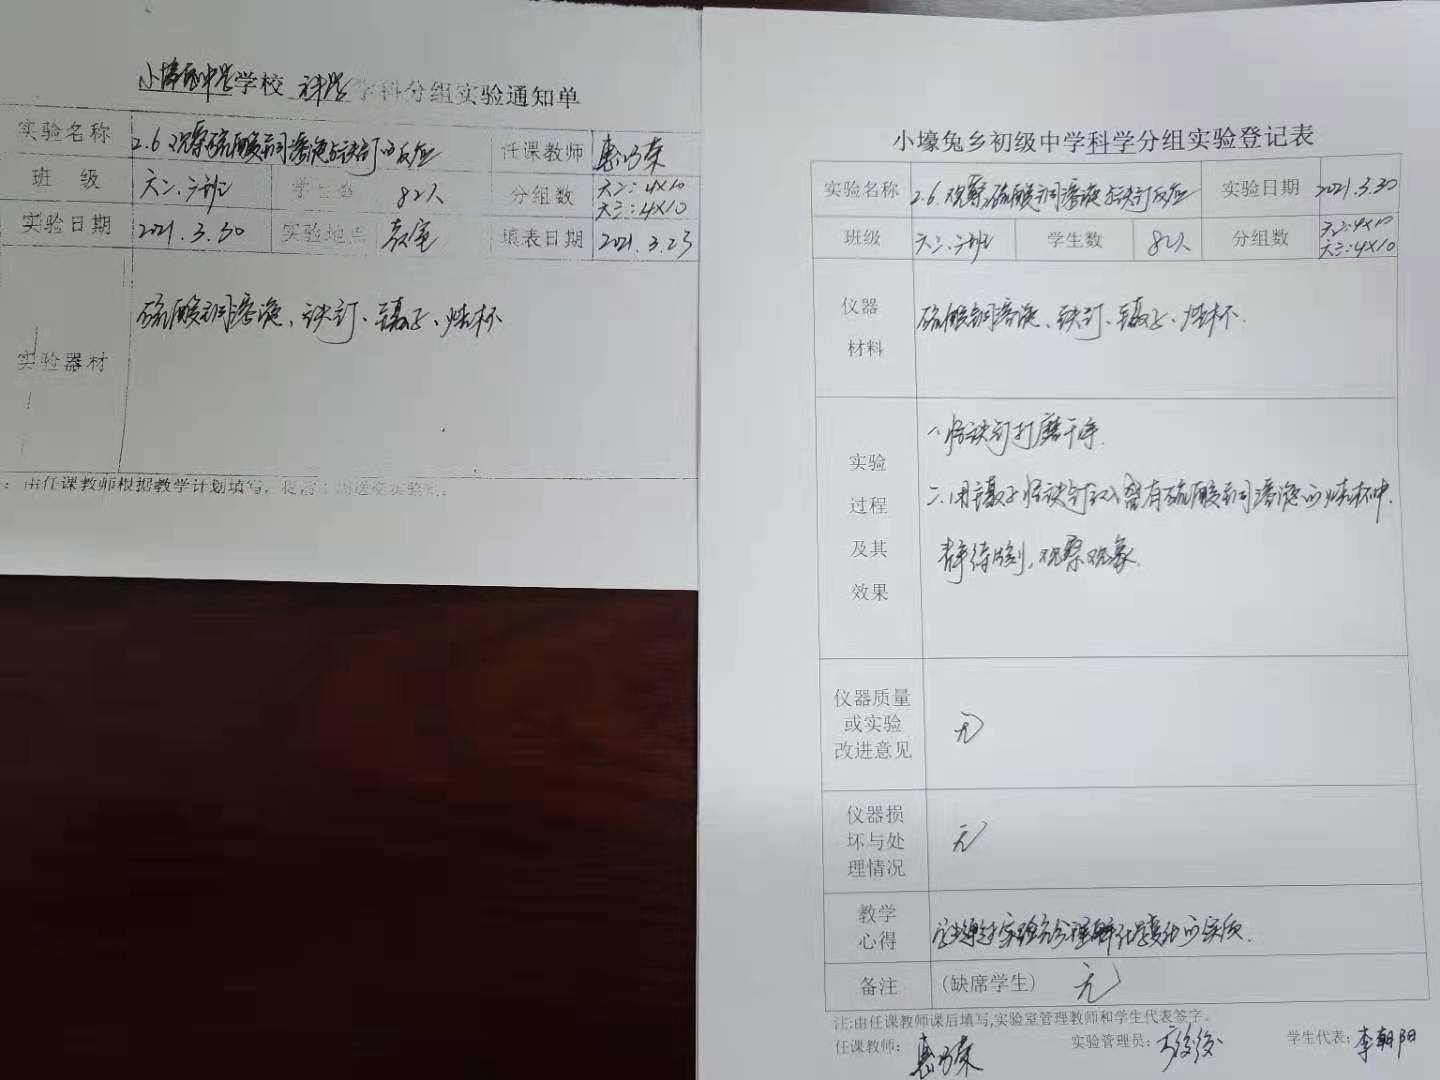 小壕兔中学学校 科学 学科分组实验通知单
实验名称 2.6观察硫酸铜溶液与铁钉的反应 任课教师
班 级 六二、六三班 学生数 82人 分组数 六二:4×10 六三:4×10
实验日期 2021.3.30 实验地点 教室 填表日期 2021.3.23
实验器材 硫酸铜溶液、铁钉、镊子、烧杯
:由任课教师根据教学计划填写,提前
小壕兔乡初级中学科学分组实验登记表
实验名称 2.6.观察硫酸铜溶液与铁钉反应 实验日期 2021.3.30
班级 六二、六三班 学生数 82人 分组数 六二:4×10 六三:4×10
仪器
材料
硫酸铜溶液、铁钉、镊子、烧杯.
实验
过程
及其
效果
一、将铁钉打磨干净.
二、用镊子将铁钉放入盛有硫酸铜溶液的烧杯中.
静待片刻,观察现象.
仪器质量
或实验
改进意见
无
仪器损
坏与处
理情况
无
教学
心得
通过实验充分理解化学变化的实质.
备注 (缺席学生) 无
注:由任课教师课后填写,实验室管理教师和学生代表签字。
任课教师: 实验管理员: 学生代表:李朝阳